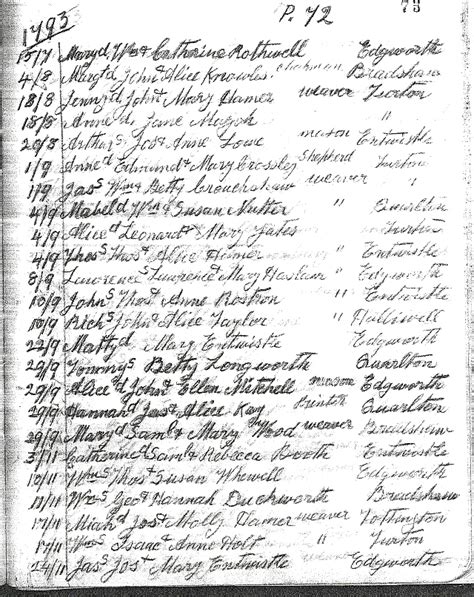 P. 72 73
1793
15/7 Mary d Wm & Catherine Rothwell Edgworth
4/8 Marg d John & Alice Knowles Bradshaw
18/8 Jenny d John & Mary Hamer weaver Turton
18/8 Anne d Jane "
20/8 Arthur s Jos & Anne Lowe mason Entwistle
1/9 Anne d Edmund & Mary Crossley Shepherd Turton
1/9 Jas s Wm & Betty weaver "
4/9 Mabel d Wm & Susan Nutter " Quarlton
4/9 Alice d Leonard & Mary Yates " Turton
4/9 Thos s Thos & Alice Hamer " Entwistle
8/9 Lawrence s Lawrence & Mary Haslam " Edgworth
10/9 John s Thos & Anne Rostron " Entwistle
10/9 Rich s John & Alice Taylor " Halliwell
22/9 Matty d Mary Entwistle Edgworth
29/9 Tommy s Betty Longworth Quarlton
29/9 Alice d John & Ellen Mitchell mason Edgworth
29/9 Hannah d Jas & Alice Kay Quarlton
29/9 Mary d Saml & Mary Wood weaver Bradshaw
3/11 Catherine d Saml & Rebecca Booth Entwistle
10/11 Wm s Thos & Susan Whewell Edgworth
10/11 Wm s Geo & Hannah Duckworth Bradshaw
17/11 d Jos & Molly Hamer weaver
17/11 Wm s Isaac & Anne Holt " Turton
24/11 Jas s Jos & Mary Entwistle Edgworth